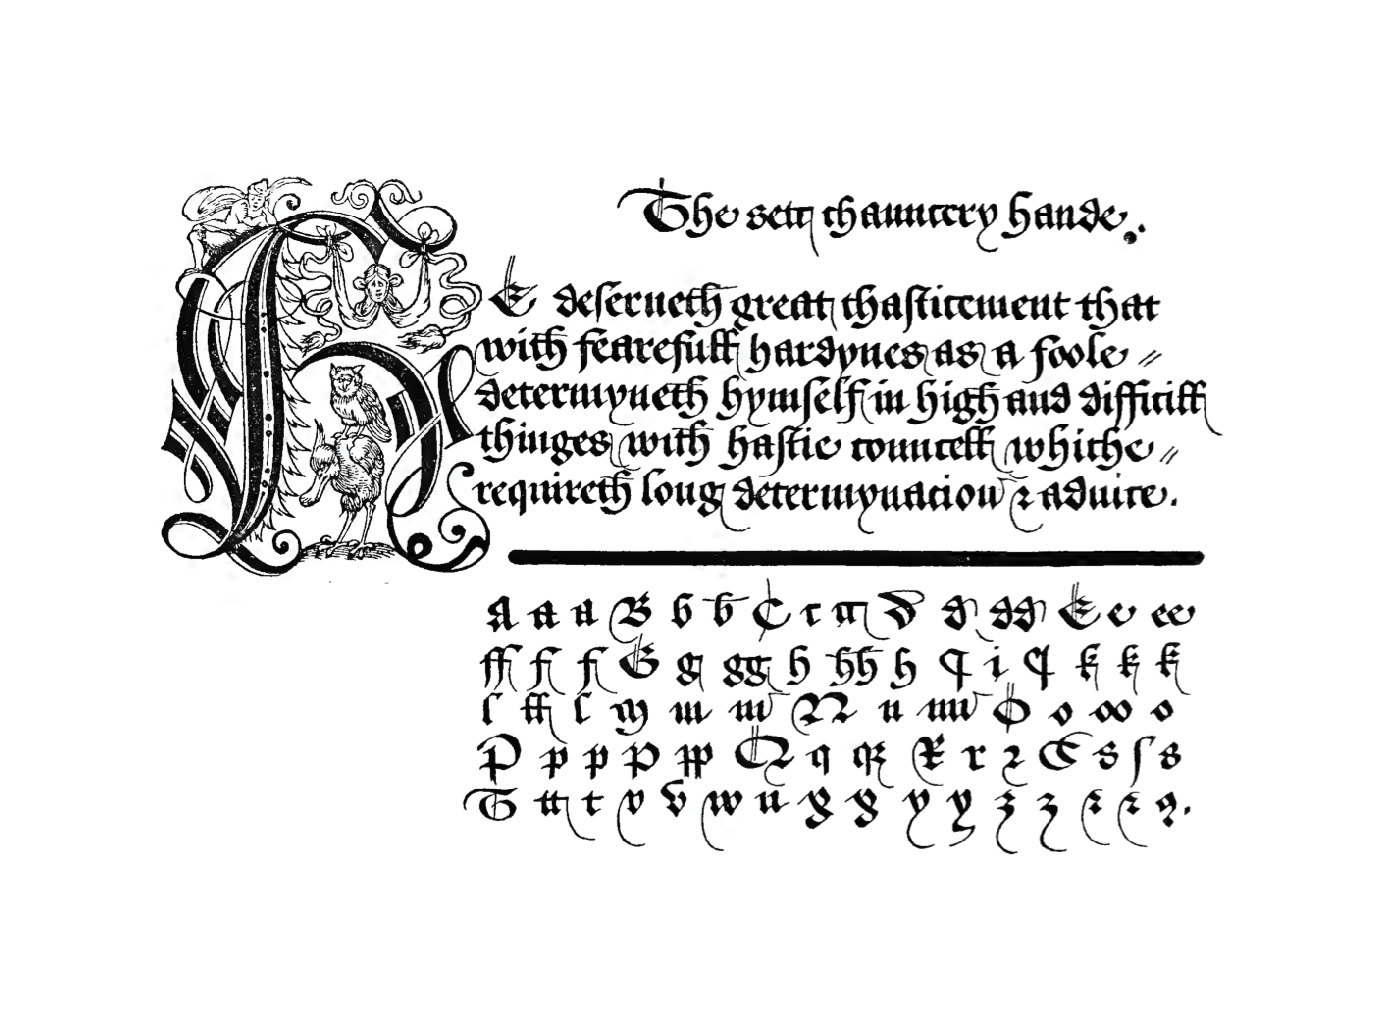 The sett chauncery hande.
HE deserueth great chasticement that
with fearefull hardynes as a foole
determyneth hymself in high and difficill
thinges with hastie councell whiche
requireth long determynacion ⁊ aduice.
A a a B b b C c cc D d dd E e ee
ff f f G g gg h hh h I i I k k k
l ll l M m m N n nn O o oo o
P p p P pp Q q q R r ꝛ S s ſ s
T tt t v v w u x x y y z z ⁊ ⁊ ꝯ.